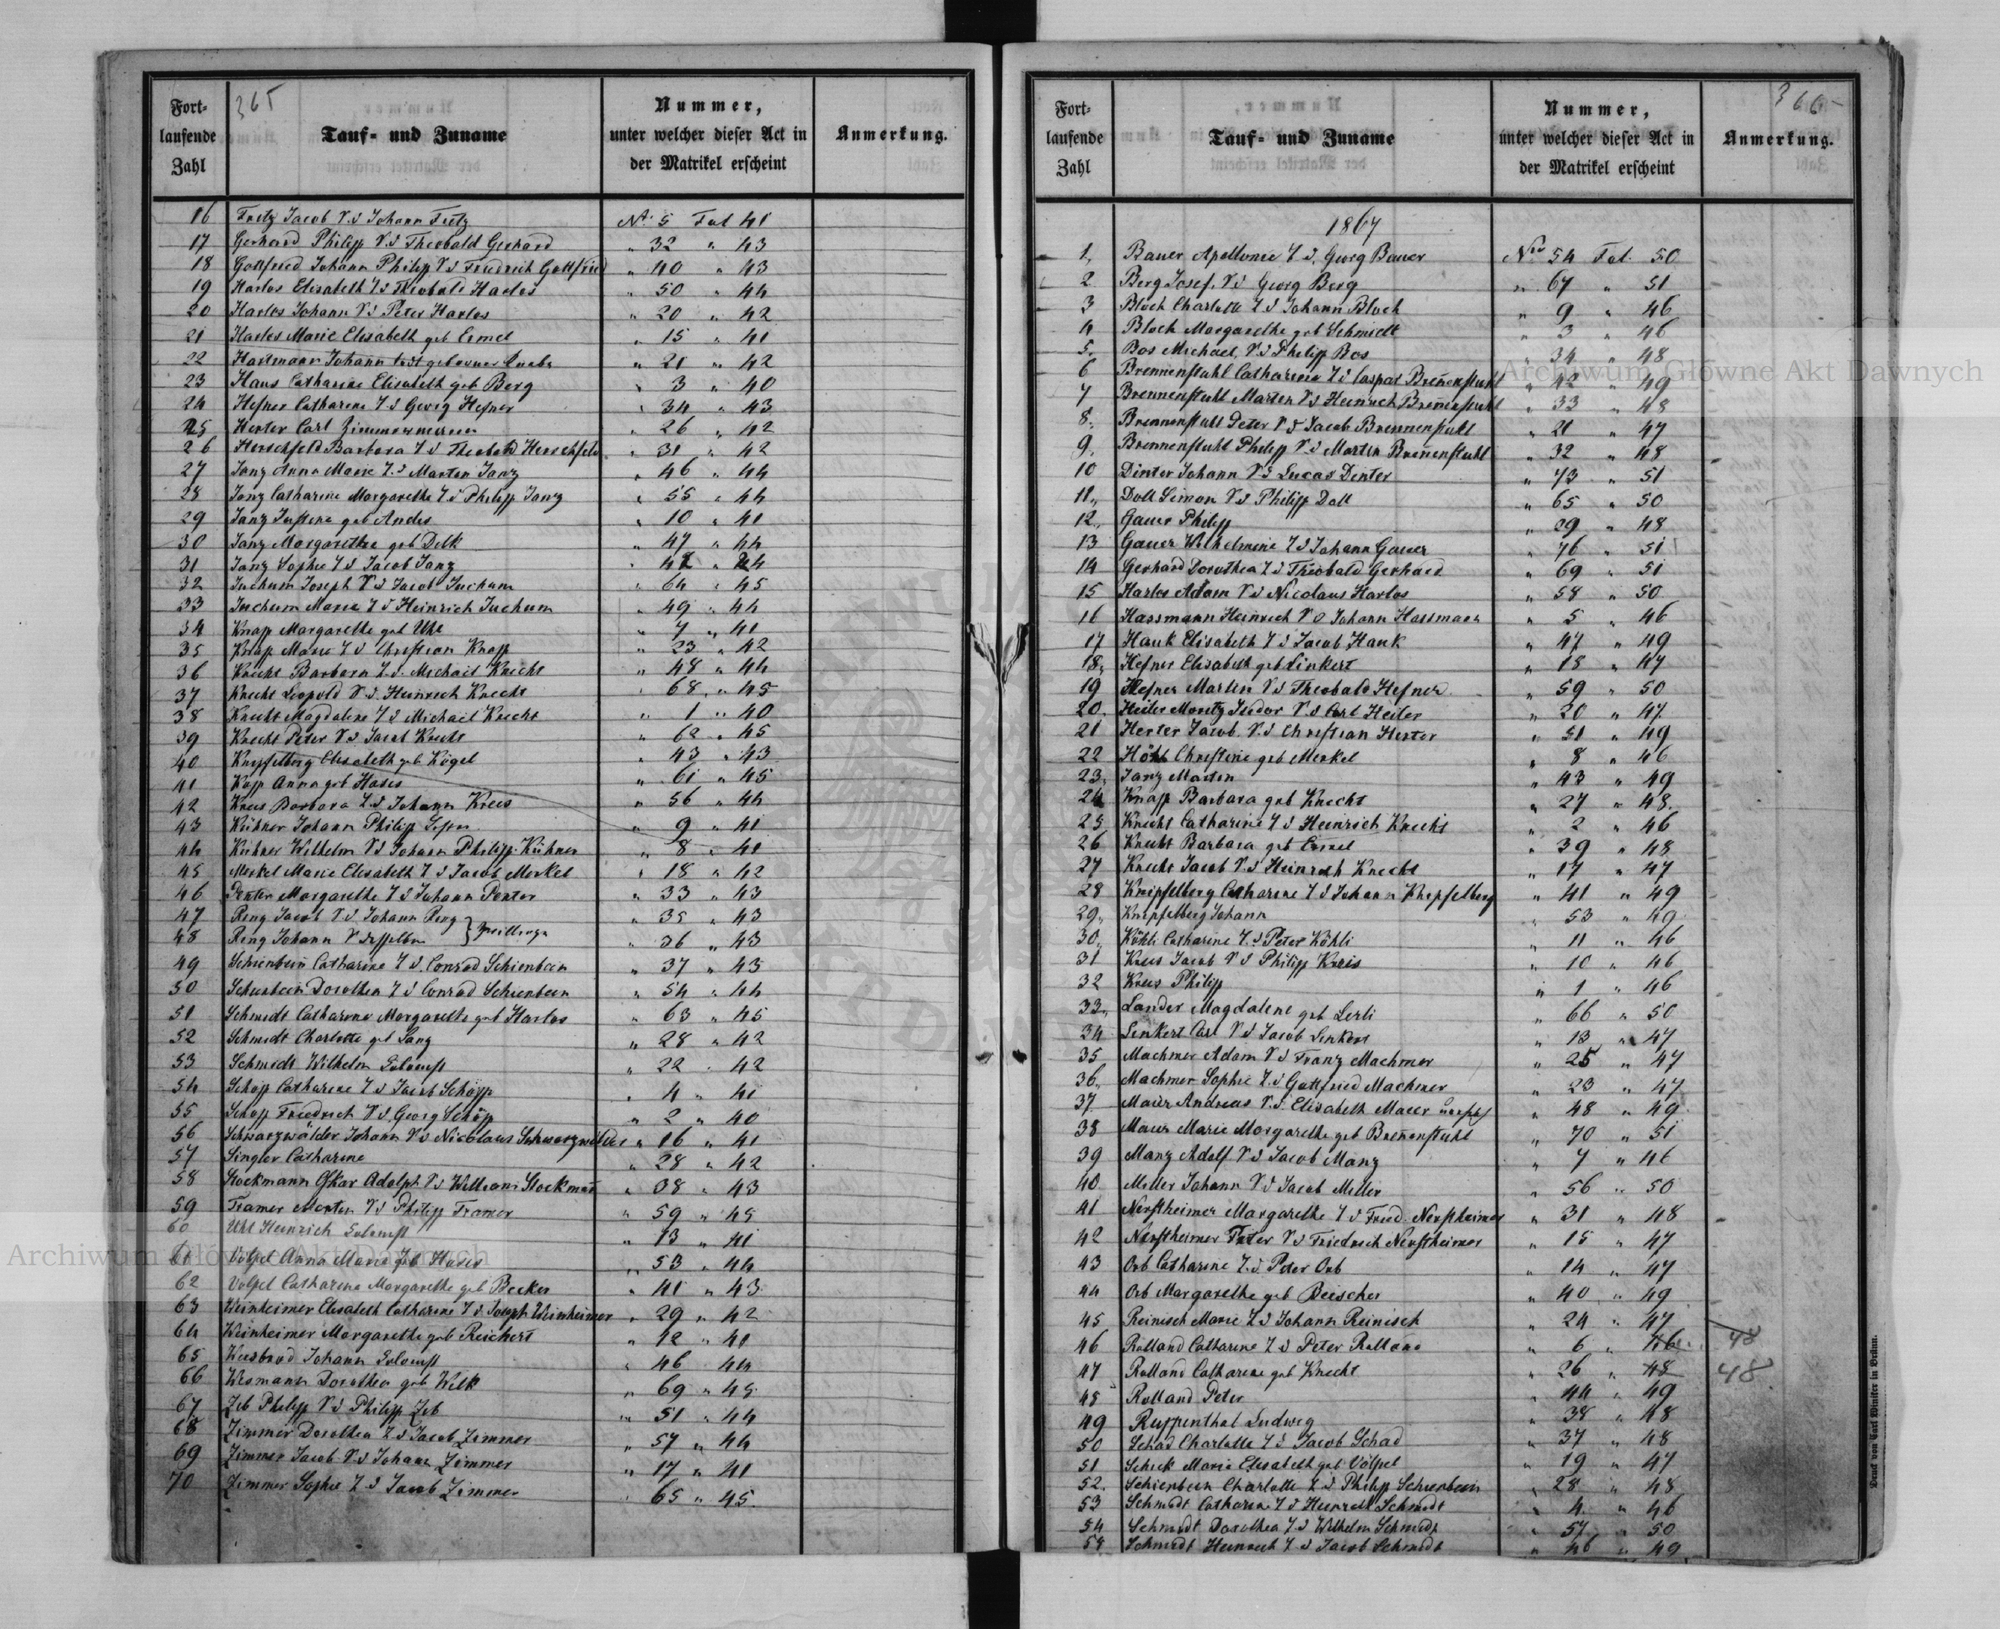 365
Fort-
laufende
Zahl
Tauf- und Zuname
Nummer,
unter welcher dieser Act in
der Matrikel erscheint
Anmerkung.
16 Fretz Jacob V. d Johann Fretz No 5 Fol 41
17 Gerhard Philipp V. d Theobald Gerhard " 32 " 43
18 Gottfried Johann Philipp V d Friedrich Gottfried " 40 " 43
19 Harlos Elisabeth T d Theobald Harlos " 50 " 44
20 Harlos Johann V d Peter Harlos " 20 " 42
21 Harlos Marie Elisabeth geb Ermel " 15 " 41
22 Hartmann Johann " 21 " 42
23 Haus Catharine Elisabeth geb Berg " 3 " 40
24 Hefner Catharine T d Georg Hefner " 34 " 43
25 Herter Carl Zimmermann " 26 " 42
26 Herschfeld Barbara T d Theobald Herschfeld " 31 " 42
27 Janz Anna Marie T d Martin Janz " 46 " 44
28 Janz Catharine Margarethe T d Philipp Janz " 55 " 44
29 Janz Justine geb Andes " 10 " 41
30 Janz Margarethe geb Delk " 47 " 44
31 Janz Sophie T d Jacob Janz " 42 " 44
32 Juchum Joseph V d Jacob Juchum " 64 " 45
33 Juchum Marie T d Heinrich Juchum " 49 " 44
34 Knap Margarethe geb Uhl " 7 " 41
35 Knap Marie T d Christian Knap " 23 " 42
36 Knecht Barbara T. d. Michael Knecht " 48 " 44
37 Knecht Leopold V. d. Heinrich Knecht " 68 " 45
38 Knecht Magdalene T d Michael Knecht " 1 " 40
39 Knecht Peter V d Jacob Knecht " 62 " 45
40 Knipfelberg Elisabeth geb Kögel " 43 " 43
41 Kopp Anna geb Hases " 61 " 45
42 Kreis Barbara T d Johann Kreis " 56 " 44
43 Kühner Johann Philipp " 9 " 41
44 Kühner Wilhelm V d Johann Philipp Kühner " 8 " 41
45 Merkel Marie Elisabeth T d Jacob Merkel " 18 " 42
46 Penter Margarethe T d Johann Penter " 33 " 43
47 Ring Jacob V. d. Johann Ring " 35 " 43
48 Ring Johann V desselben } Zwillinge " 36 " 43
49 Schienbein Catharine T d. Conrad Schienbein " 37 " 43
50 Schienbein Dorothea T d Conrad Schienbein " 54 " 44
51 Schmidt Catharine Margarethe geb Harlos " 63 " 45
52 Schmidt Charlotte geb Janz " 28 " 42
53 Schmidt Wilhelm Colonist " 22 " 42
54 Schöpp Catharine T d Jacob Schöpp " 4 " 41
55 Schöpp Friedrich V. d. Georg Schöpp " 2 " 40
56 Schwarzwälder Johann V. d Nicolaus Schwarzwälder " 16 " 41
57 Singler Catharine " 28 " 42
58 Stockmann Oskar Adolph V d William Stockmañ " 38 " 43
59 Tramer Martin V d Philipp Tramer " 59 " 45
60 Uhl Heinrich Colonist " 13 " 41
61 Völpel Anna Marie geb Hases " 53 " 44
62 Völpel Catharina Margarethe geb Becker " 41 " 43
63 Weinheimer Elisabeth Catharine T d. Joseph Weinheimer " 29 " 42
64 Weinheimer Margarethe geb Reichert " 12 " 41
65 Weisbrod Johann Colonist " 46 44
66 Wismann Dorothea geb Welk " 69 " 45
67 Zeb Philipp V d Philipp Zeb " 51 " 44
68 Zimmer Dorothea T d Jacob Zimmer " 57 " 44
69 Zimmer Jacob V. d Johann Zimmer " 17 " 41
70 Zimmer Sophie T d Jacob Zimmer " 65 " 45
366
Fort-
laufende
Zahl
Tauf- und Zuname
Nummer,
unter welcher dieser Act in
der Matrikel erscheint
Anmerkung.
1867
1. Bauer Apollonie T d. Georg Bauer Nro 54 Fol. 50
2 Berg Josef. V. d Georg Berg " 67 " 51
3 Bloch Charlotte T d Johann Bloch " 9 " 46
4 Bloch Margarethe geb Schmidt " 3 " 46
5. Bos Michael V. d Philipp Bos " 34 " 48
6 Brennenstuhl Catharine T d Caspar Breñenstuhl " 42 " 49
7 Brennenstuhl Martin V d Heinrich Breñenstuhl " 33 " 48
8. Brennenstuhl Peter V d Jacob Brennenstuhl " 21 " 47
9. Brennenstuhl Philipp V d Martin Breñenstuhl " 32 " 48
10 Dinter Johann V d Lucas Dinter " 73 " 51
11. Doll Simon V d Philipp Doll " 65 " 50
12. Gauer Philipp " 29 " 48
13 Gauer Wilhelmine T d Johann Gauer " 76 " 51
14 Gerhard Dorothea T d Theobald Gerhard " 69 " 51
15 Harlos Adam V d Nicolaus Harlos " 58 " 50
16 Hassmann Heinrich V d Johann Hassmann " 5 " 46
17 Hauk Elisabeth T d Jacob Hauk " 47 " 49
18. Hefner Elisabeth geb Linkert " 18 " 47
19 Hefner Martin V d Theobald Hefner " 59 " 50
20. Heiler Moritz Isidor V. d Carl Heiler " 20 " 47
21 Herter Jacob. V. d Christian Herter " 51 " 49
22 Höhl Christine geb Merkel " 8 " 46
23. Janz Martin " 43 " 49
24 Knapp Barbara geb Knecht " 27 " 48.
25 Knecht Catharine T d Heinrich Knecht " 2 " 46
26 Knecht Barbara geb Ermel " 39 " 48
27 Knecht Jacob V. d Heinrich Knecht " 17 " 47
28 Knipfelberg Catharine T d Johann Knipfelberg " 41 " 49
29. Knipfelberg Johann " 53 " 49
30. Köhli Catharine T. d Peter Köhli " 11 " 46
31 Kreis Jacob V d Philipp Kreis " 10 " 46
32 Kreis Philipp " 1 " 46
33. Lander Magdalene geb Lerli " 66 " 50
34 Linkert Carl V d Jacob Linkert " 13 " 47
35 Machmer Adam V d Franz Machmer " 25 " 47
36. Machmer Sophie T. d Gottfried Machmer " 23 " 47
37 Maier Andreas V. d. Elisabeth Maier " 48 " 49
38 Maur Marie Margarethe geb Breñenstuhl " 70 " 51
39 Manz Adolf V d Jacob Manz " 7 " 46
40 Meller Johann V d Jacob Meller " 56 " 50
41 Nerstheimer Margarethe T d Fried. Nerstheimer " 31 " 48
42 Nerstheimer Peter V d Friedrich Nerstheimer " 15 " 47
43 Orb Catharine T. d Peter Orb " 14 " 47
44 Orb Margarethe geb Dreischer " 40 " 49
45 Reinisch Marie T d Johann Reinisch " 24 " 47
46 Rolland Catharine T d Peter Rolland " 6 " 46. 48
47 Rolland Catharine geb Knecht " 26 " 48 48
48 Rolland Peter " 44 " 49
49 Ruppenthal Ludwig " 38 " 48
50 Schad Charlotte T d Jacob Schad " 37 " 48
51 Schick Marie Elisabeth geb Völpel " 19 " 47
52. Schienbein Charlotte T d Philipp Schienbein " 28 " 48
53 Schmidt Catharine T d Heinrich Schmidt " 4 " 46
54 Schmidt Dorothea T. d Wilhelm Schmidt " 57 " 50
55 Schmidt Heinrich V d Jacob Schmidt " 46 " 49
Druck von Carl Winiker in Brünn.
Archiwum Główne Akt Dawnych
Archiwum Główne Akt Dawnych